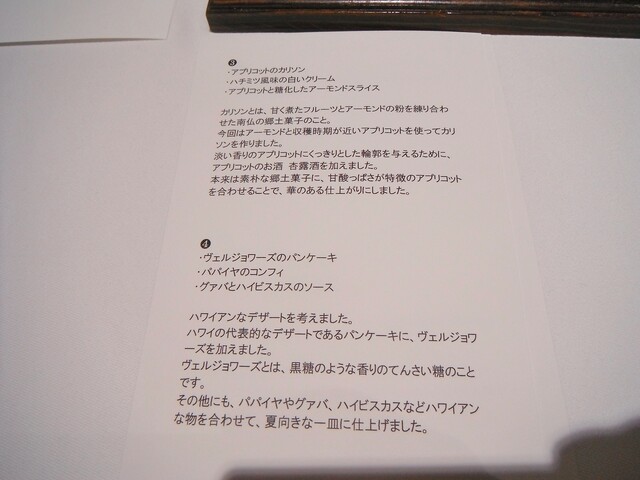 ❸
・アプリコットのカリソン
・ハチミツ風味の白いクリーム
・アプリコットと糖化したアーモンドスライス
カリソンとは、甘く煮たフルーツとアーモンドの粉を練り合わ
せた南仏の郷土菓子のこと。
今回はアーモンドと収穫時期が近いアプリコットを使ってカリ
ソンを作りました。
淡い香りのアプリコットにくっきりとした輪郭を与えるために、
アプリコットのお酒 杏露酒を加えました。
本来は素朴な郷土菓子に、甘酸っぱさが特徴のアプリコット
を合わせることで、華のある仕上がりにしました。
❹
・ヴェルジョワーズのパンケーキ
・パパイヤのコンフィ
・グァバとハイビスカスのソース
ハワイアンなデザートを考えました。
ハワイの代表的なデザートであるパンケーキに、ヴェルジョワ
ーズを加えました。
ヴェルジョワーズとは、黒糖のような香りのてんさい糖のこと
です。
その他にも、パパイヤやグァバ、ハイビスカスなどハワイアン
な物を合わせて、夏向きな一皿に仕上げました。